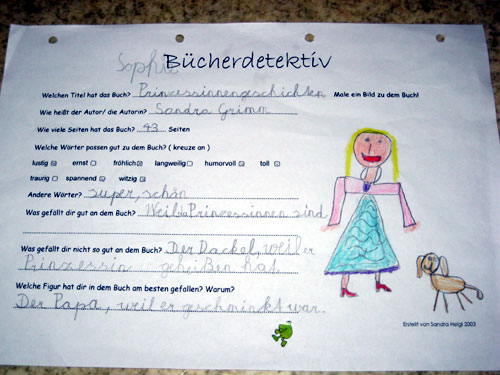 Sophie
Bücherdetektiv
Welchen Titel hat das Buch? Prinzessinnengeschichten Male ein Bild zu dem Buch!
Wie heißt der Autor/ die Autorin? Sandra Grimm
Wie viele Seiten hat das Buch? 43 Seiten
Welche Wörter passen gut zu dem Buch? ( kreuze an )
lustig ☒ ernst ☐ fröhlich ☒ langweilig ☐ humorvoll ☒ toll ☒
traurig ☐ spannend ☒ witzig ☒
Andere Wörter? super, schön
Was gefällt dir gut an dem Buch? Weil da Prinzessinnen sind
Was gefällt dir nicht so gut an dem Buch? Der Dackel, weil er
Prinzessin geheißen hat
Welche Figur hat dir in dem Buch am besten gefallen? Warum?
Der Papa, weil er geschminkt war.
Erstellt von Sandra Heigl 2003